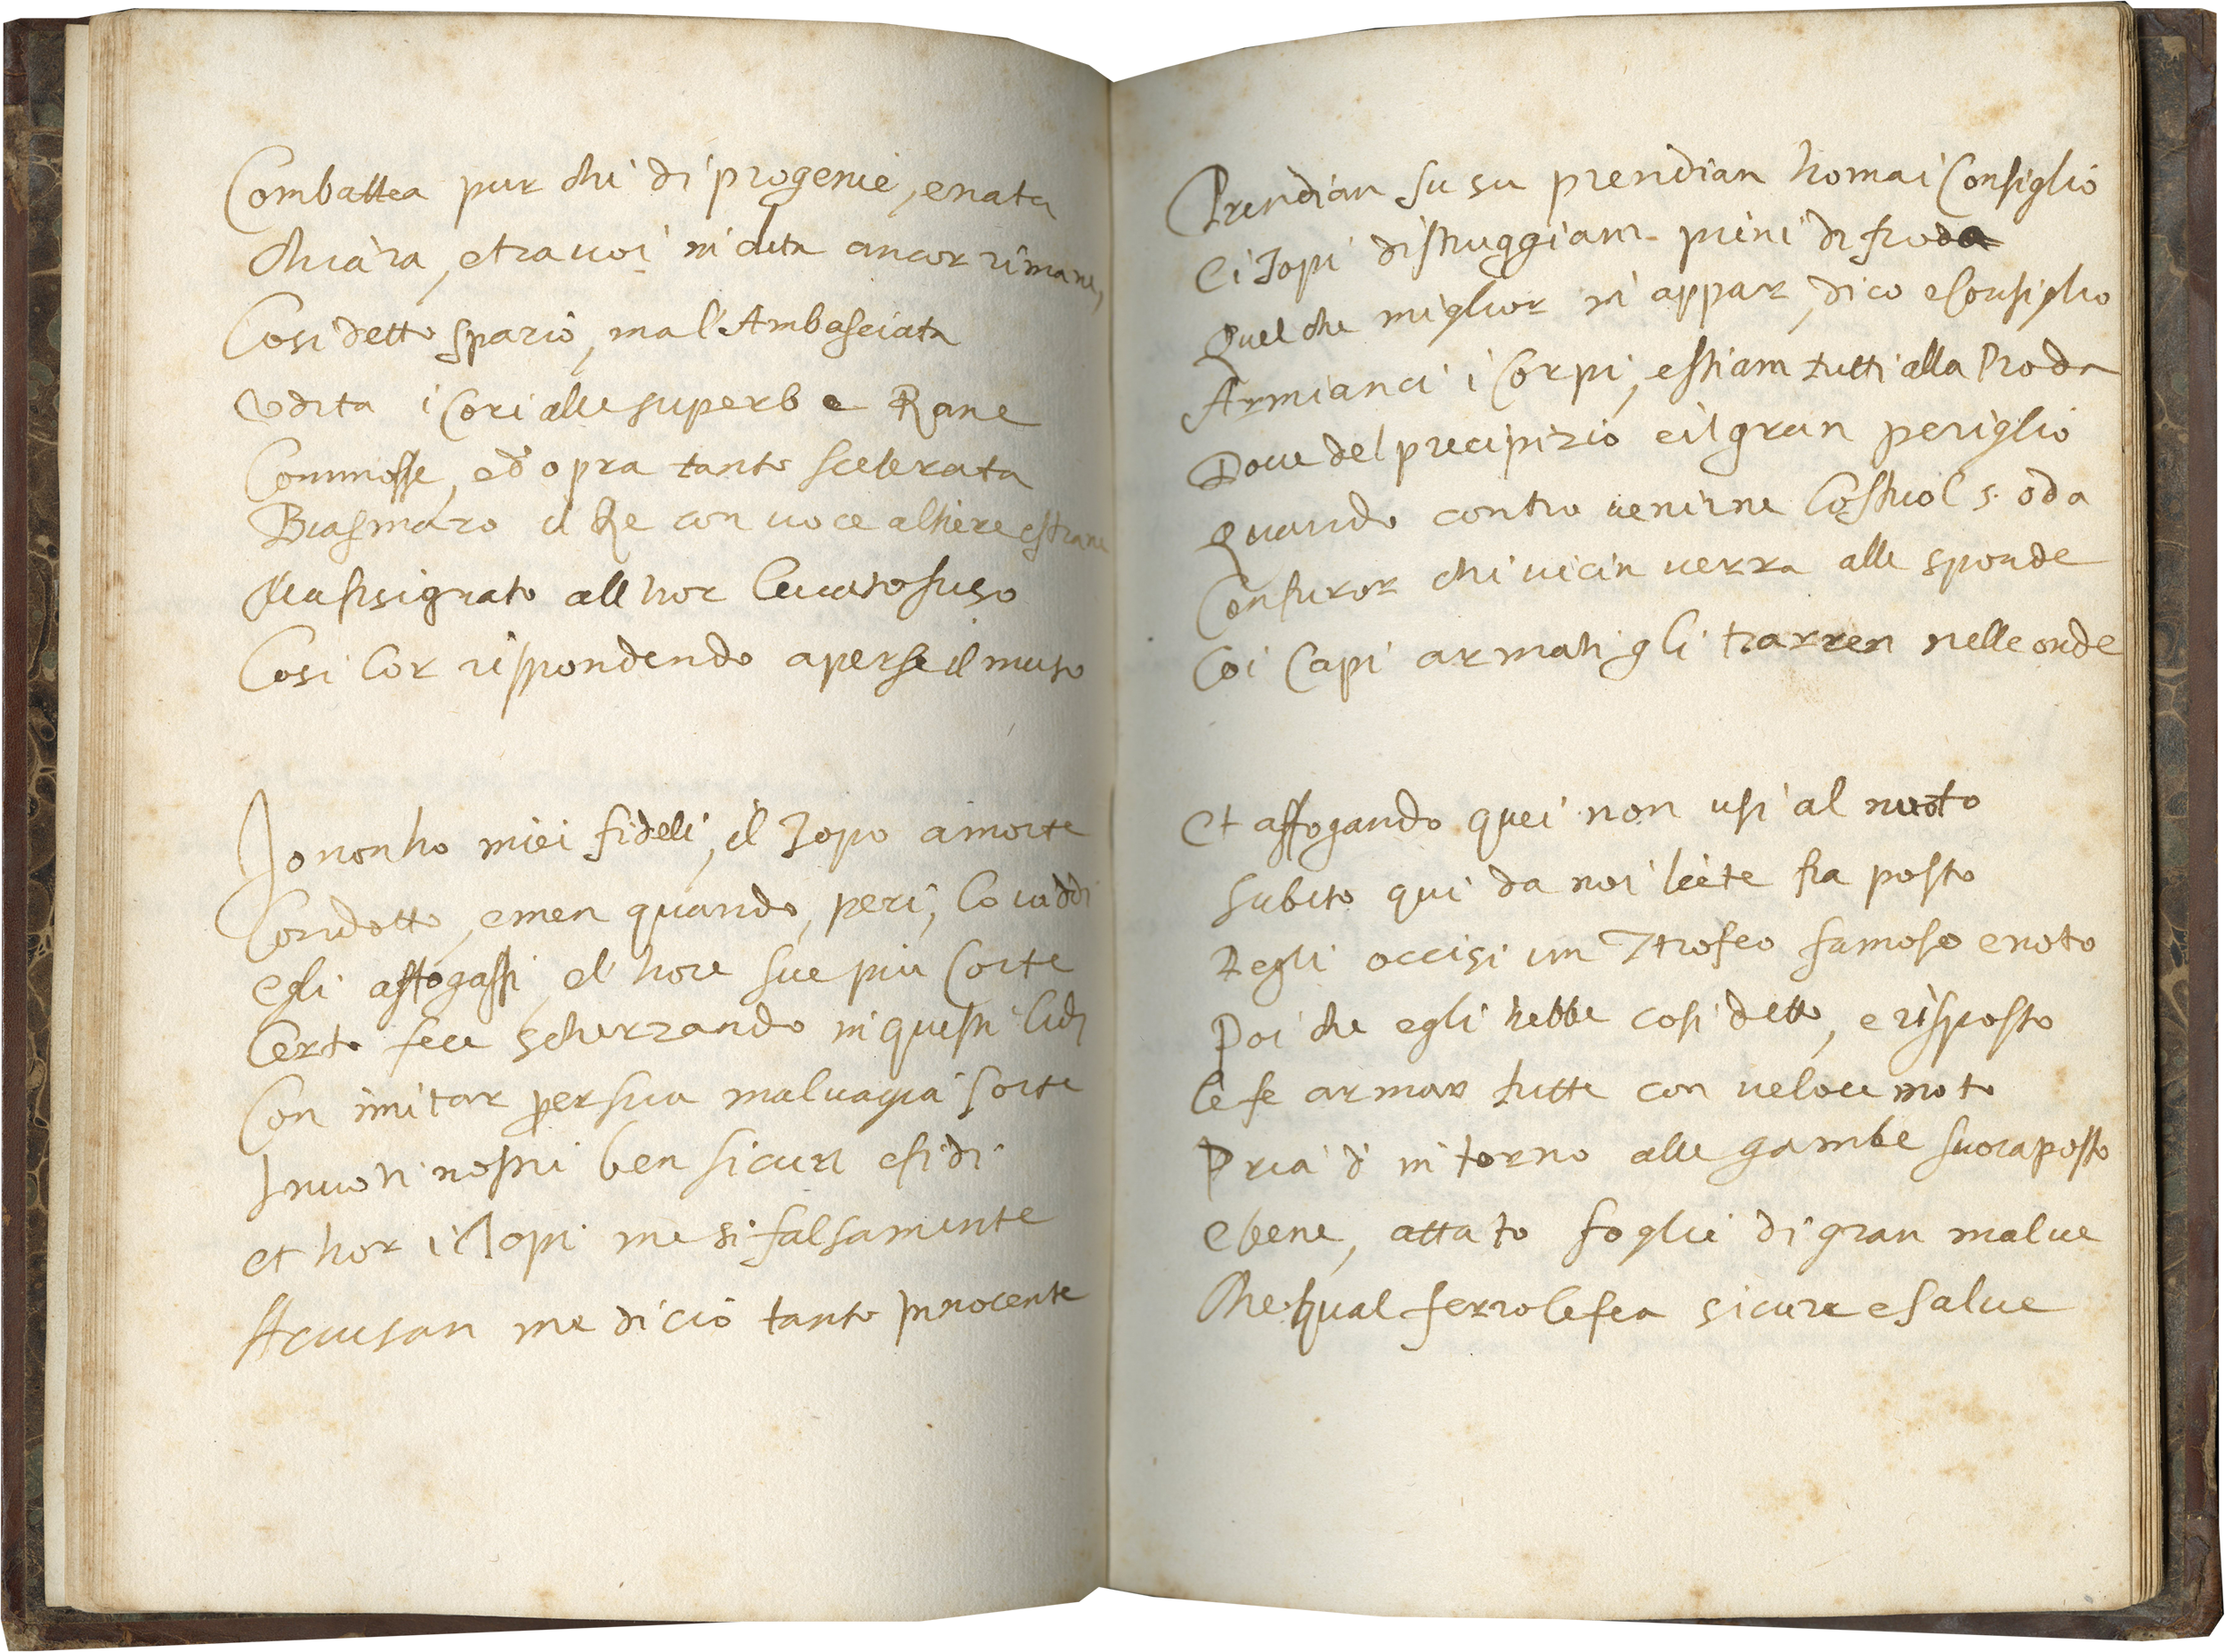 Combattea pur chi di progenie, e nata
Chiara, et tra uoi in uita ancor rimane,
Cosi detto spario, ma l'Ambasciata
Vdita i Cori alle superbe Rane
Commosse, ed opra tanto scelerata
Biasmaro il Re con uoce altiere e strane
Ma fisignato all hor leuato suso
Cosi lor rispondendo aperse il muso
Io non ho miei fideli, il Topo a morte
Condotto, e men quando, peri, lo uiddi
egli affogassi, el' hore sue piu Corte
Certo fece scherzando in questi lidi
Con imitar per sua maluagia sorte
I nuoti nostri ben sicuri e fidi
et hor i Topi me si falsamente
Accusan me di ciò tanto Innocente
Prendian su su prendian homai Consiglio
Ei Topi distruggiam pieni di froda
Quel che miglior mi appar, dico e Consiglio
Armianci i Corpi, e stiam tutti alla Proda
Doue del precipizio è il gran periglio
Quando contro uenirne lo stuol s'oda
Con furor chi uicin uerra alle sponde
Coi Capi armati gli trarren nelle onde
Et affogando quei non usi al nuoto
Subito qui da noi liete fia posto
Degli occisi un Trofeo famoso e noto
Poi che egli hebbe cosi detto, e risposto
le fe armar tutte con ueloce moto
Pria d' intorno alle gambe suora posto
e bene, attato foglie di gran malue
Che qual ferro le fea sicure e salue